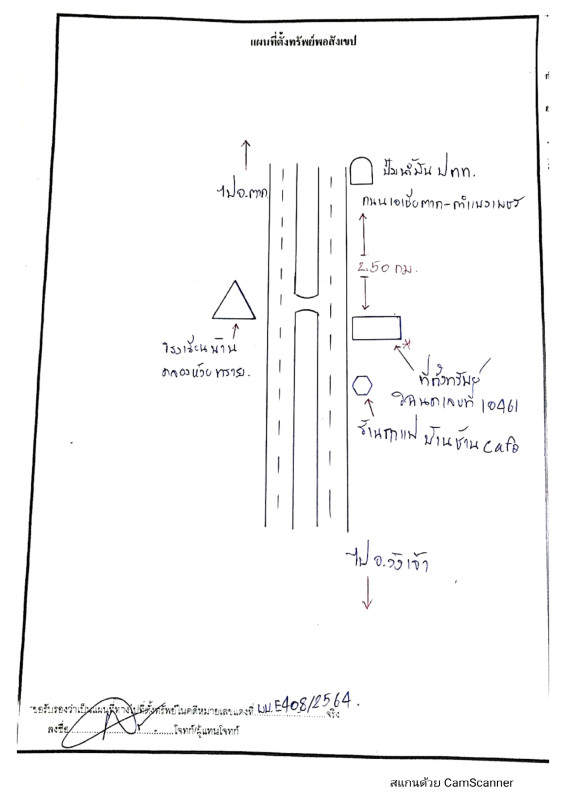 แผนที่ตั้งทรัพย์พอสังเขป
ปั๊มน้ำมัน ปตท.
ไป อ.ตาก
ถนนเอเชียตาก-กำแพงเพชร
2.50 กม.
โรงเรียนบ้าน
คลองห้วยทราย
ที่ตั้งทรัพย์
โฉนดเลขที่ 10461
ร้านกาแฟ บ้านช้าน cafe
ไป อ.วังเจ้า
ขอรับรองว่าเป็นแผนที่ทางไปที่ตั้งทรัพย์ในคดีหมายเลขแดงที่ ผบ.E408/2564. จริง
ลงชื่อ โจทก์/ผู้แทนโจทก์
สแกนด้วย CamScanner